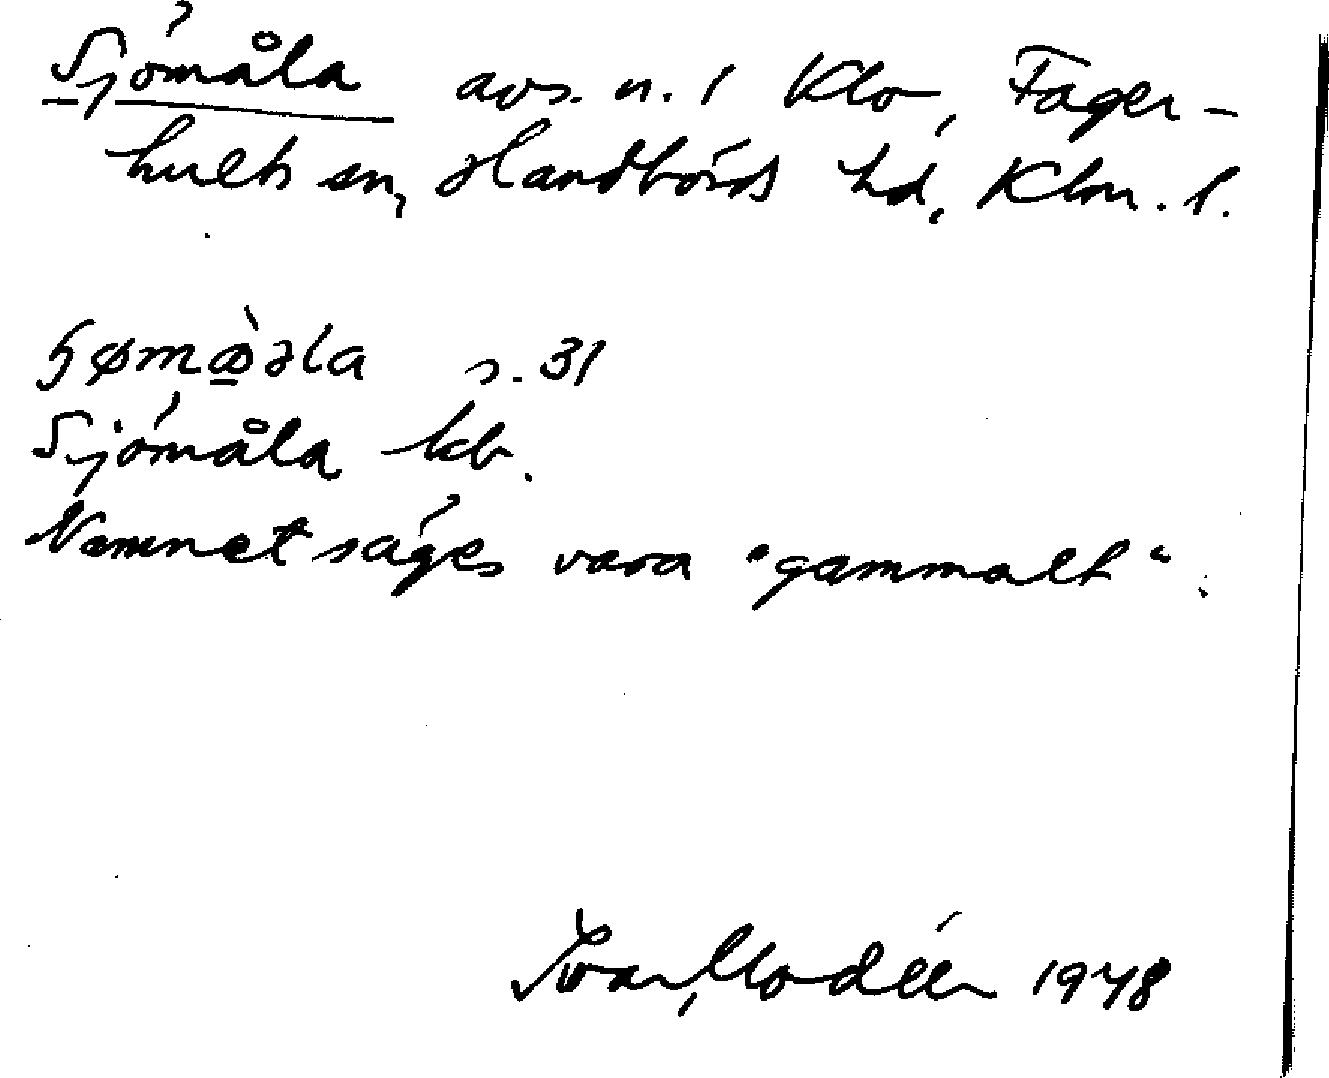 Sjömåla avs. n. i Klo, Fager-
hults sn, Handbörds hd, Klm. l.
s. 31
Sjömåla kb.
Namnet säges vara "gammalt".
Ivar Modéer 1948